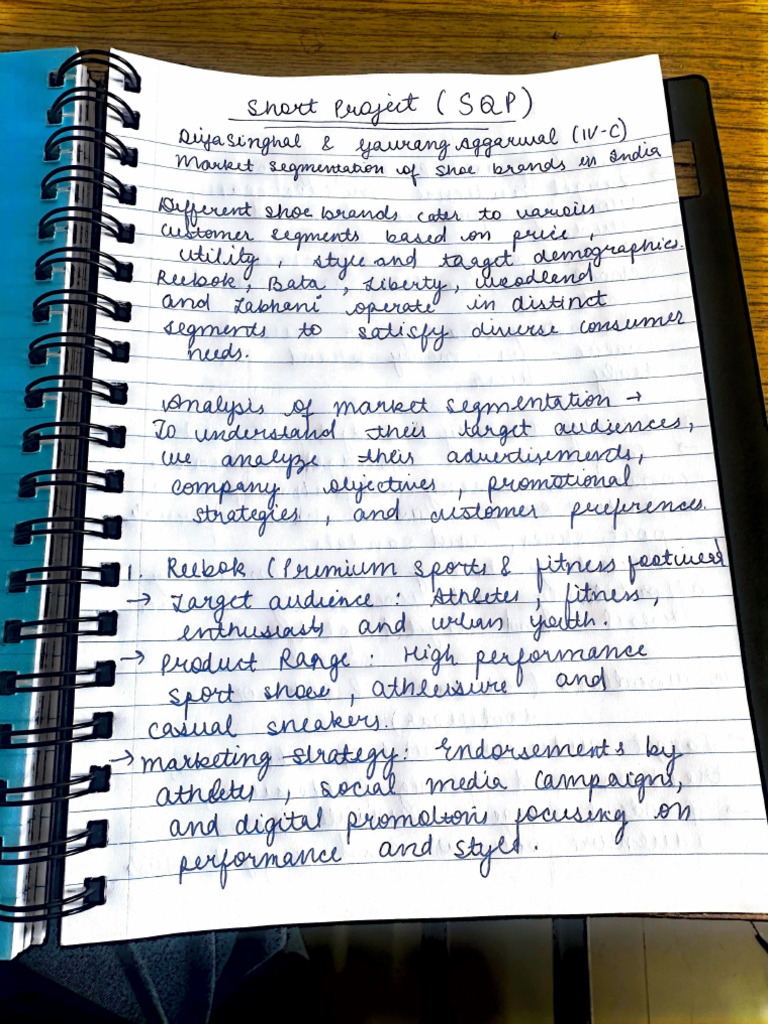 Short Project (SQP)
Diya Singhal & Gaurang Aggarwal (IV-C)
Market Segmentation of Shoe brands in India
Different shoe brands cater to various
customer segments based on price,
utility, style and target demographics.
Reebok, Bata, Liberty, Woodland
and Lakhani operate in distinct
segments to satisfy diverse consumer
needs.
Analysis of market segmentation →
To understand their target audiences,
we analyze their advertisements,
company objectives, promotional
strategies, and customer preferences.
1. Reebok (Premium sports & fitness footwear)
→ Target audience: Athletes, fitness,
enthusiasts and urban youth.
→ Product Range: High performance
sport shoes, athleisure and
casual sneakers.
→ Marketing strategy: Endorsements by
athletes, social media campaigns,
and digital promotions focusing on
performance and style.